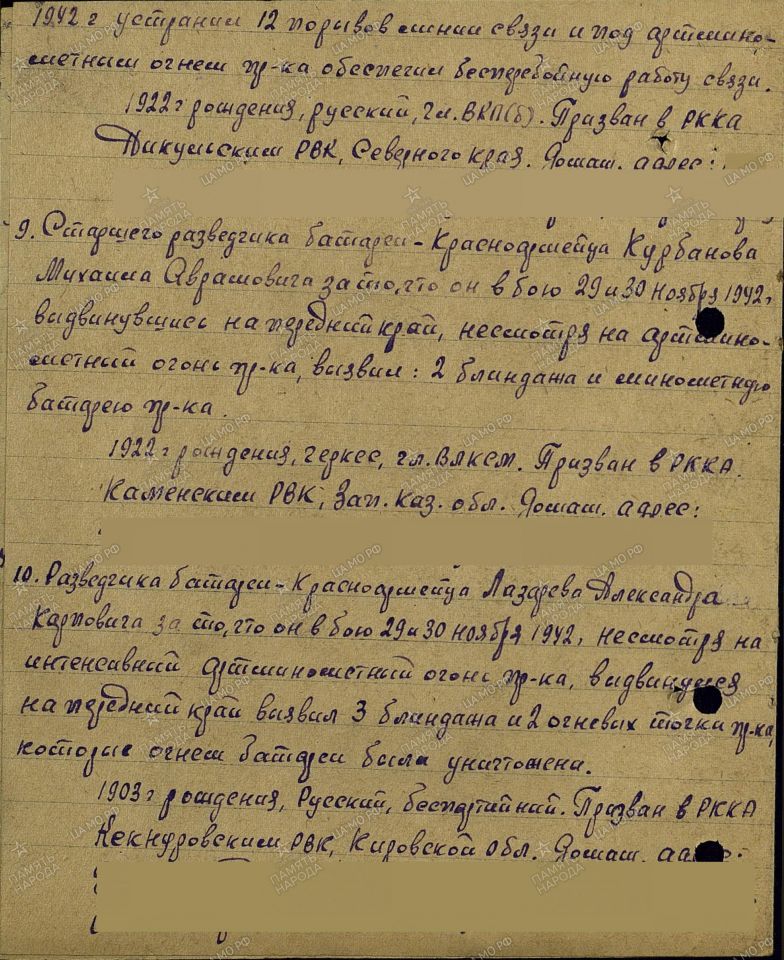 1942 г устранил 12 порывов линии связи и под артмино-
метным огнем пр-ка обеспечил бесперебойную работу связи.
1922 г рождения, русский, чл. ВКП(б). Призван в РККА
Дикульским РВК, Северного края. Домаш. адрес:
9. Старшего разведчика батареи - Красноармейца Курбанова
Михаила Аврамовича за то, что он в бою 29 и 30 ноября 1942 г
выдвинувшись на передний край, несмотря на артмино-
метный огонь пр-ка, выявил: 2 блиндажа и минометную
батарею пр-ка.
1922 г рождения, черкес, чл. ВЛКСМ. Призван в РККА
Каменским РВК, Зап. Каз. обл. Домаш. адрес:
10. Разведчика батареи - Красноармейца Лазарева Александра
Карповича за то, что он в бою 29 и 30 ноября 1942, несмотря на
интенсивный артминометный огонь пр-ка, выдвинулся
на передний край выявил 3 блиндажа и 2 огневых точки пр-ка,
которые огнем батареи были уничтожены.
1903 г рождения, Русский, беспартийный. Призван в РККА
РВК, Кировской обл. Домаш.
ПАМЯТЬ НАРОДА
ЦАМО.РФ